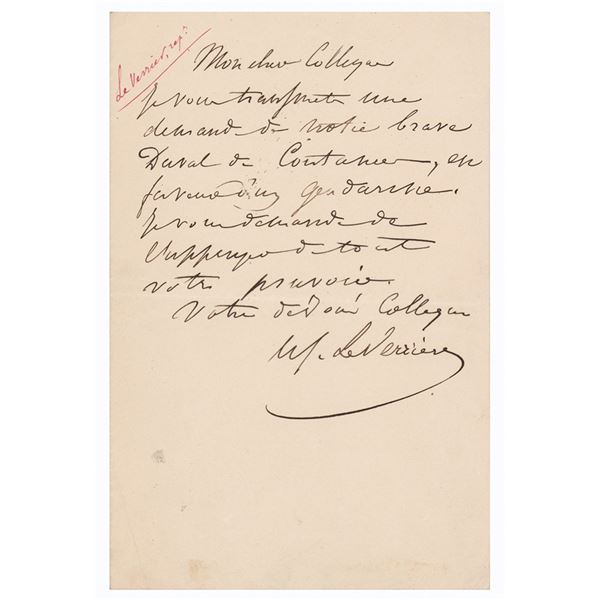 Le Verrier, repr
Mon cher Collegue
Je vous transmets une
demande de notre brave
Duval de Coutances, en
faveur d'un gendarme.
Je vous demande de
l'appuyer de tout
votre pouvoir.
Votre dévoué Collegue
UJ. Le Verrier